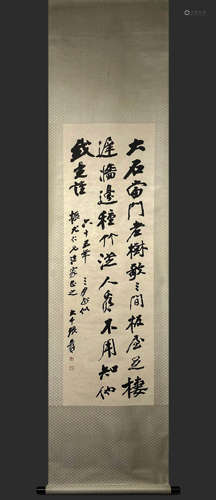 大石當門老樹敧三間板屋足棲
遲牆邊種竹從人看不用知他
我是誰
六十五年三月為似
振九仁兄法家正之 大千張爰